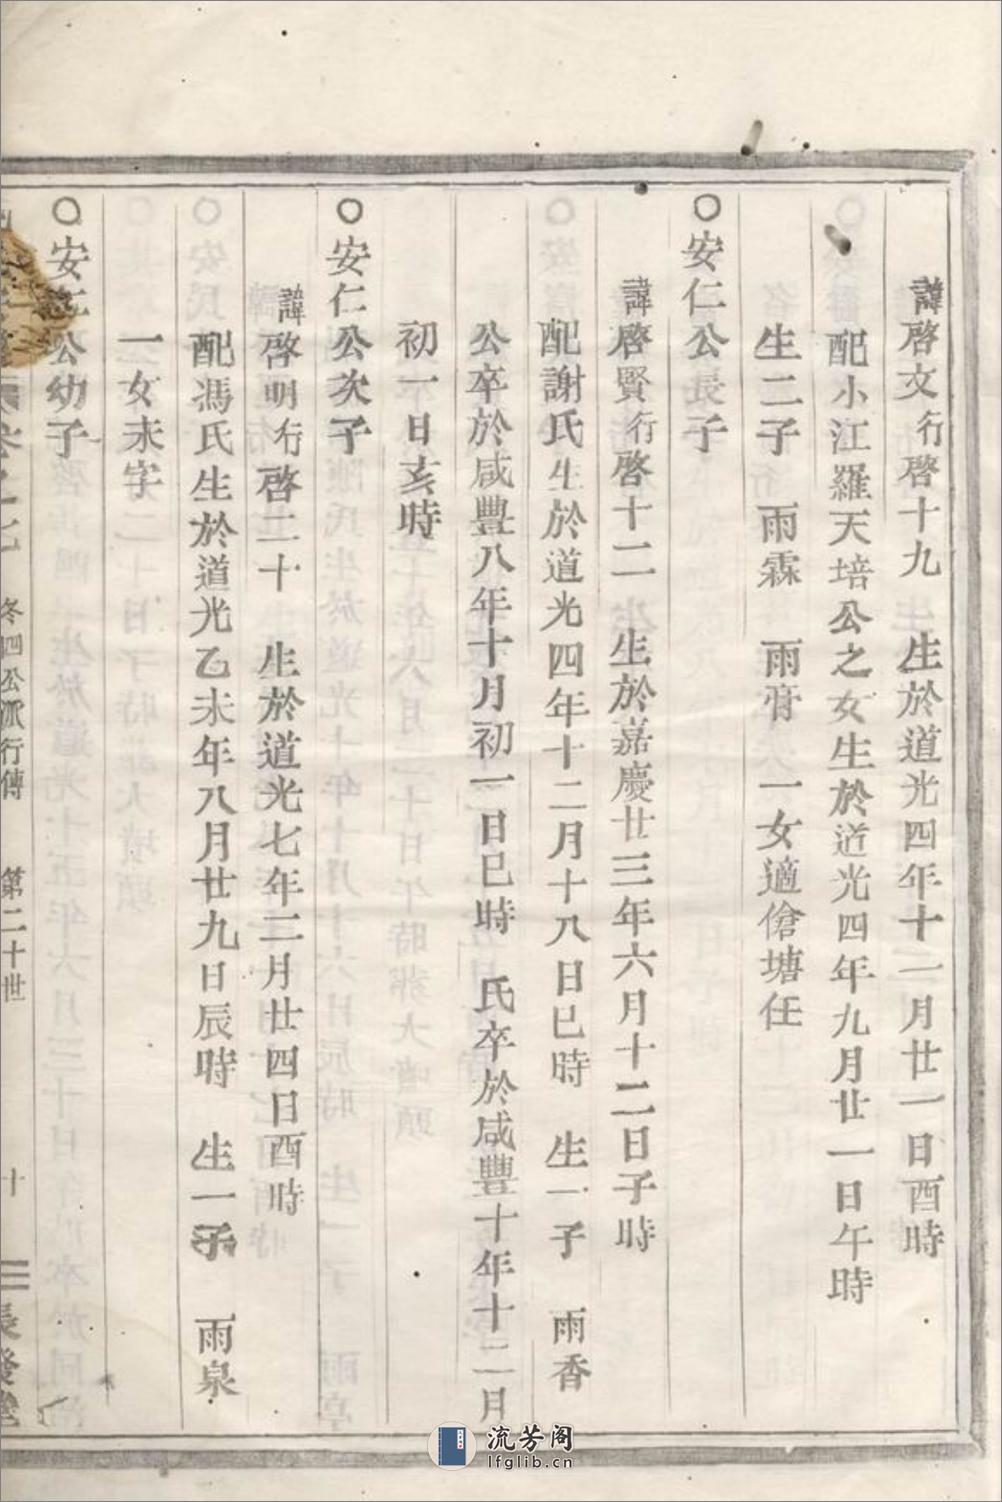 諱啓文行啓十九　生於道光四年十二月廿一日酉時
配小江羅天培公之女生於道光四年九月廿一日午時
生二子　雨霖　雨膏　一女適傖塘任
○安仁公長子
諱啓賢行啓十二　生於嘉慶廿三年六月十二日子時
配謝氏生於道光四年十二月十八日巳時　生一子　雨香
公卒於咸豐八年十月初一日巳時　氏卒於咸豐十年十二月
初一日亥時
○安仁公次子
諱啓明行啓二十　生於道光七年二月廿四日酉時
配馮氏生於道光乙未年八月廿九日辰時　生一子　雨泉
一女未字
○安仁公幼子
卷之七　冬四公派行傳　第二十世　十　長發堂
流芳阁
lfglib.cn